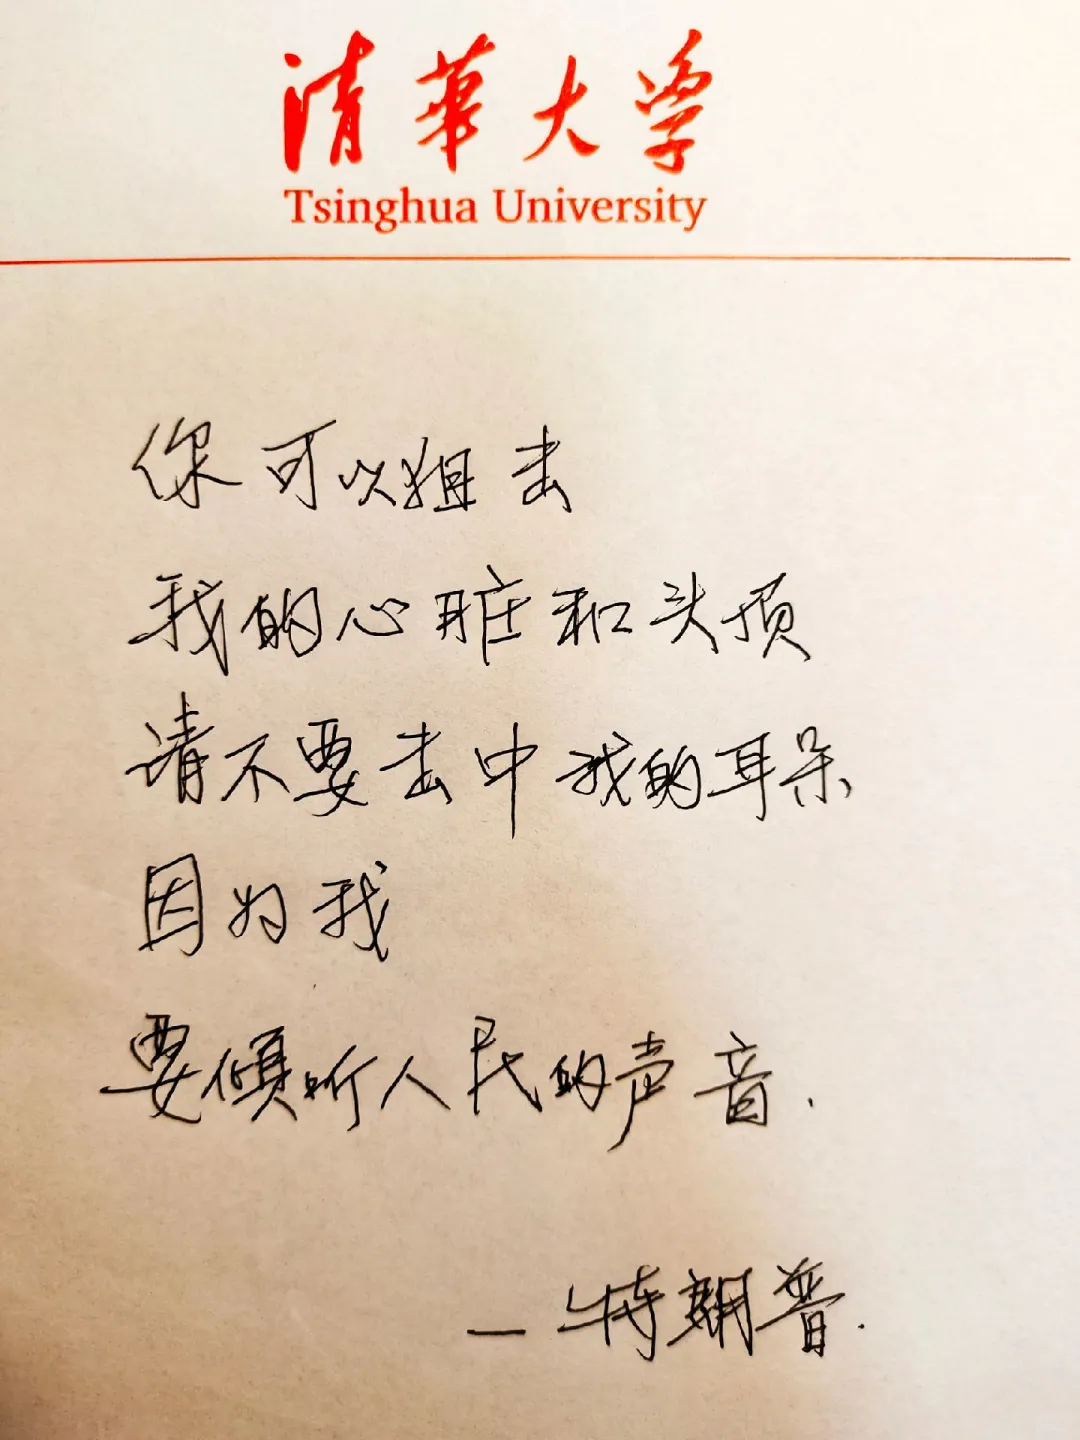 清華大学
Tsinghua University
你可以狙击
我的心脏和头颅
请不要击中我的耳朵
因为我
要倾听人民的声音.
—特朗普.